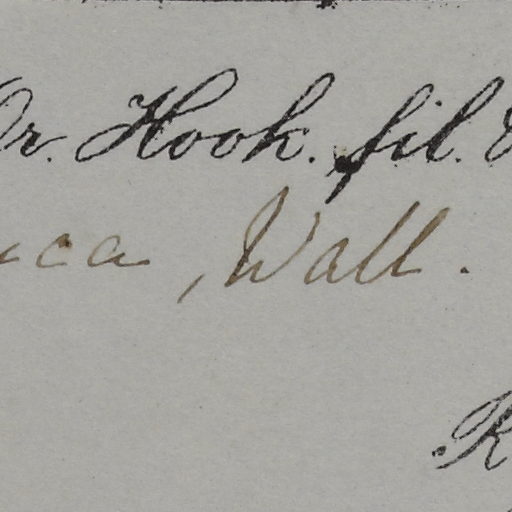 Dr. Hook. fil. &
ca, Wall.
R